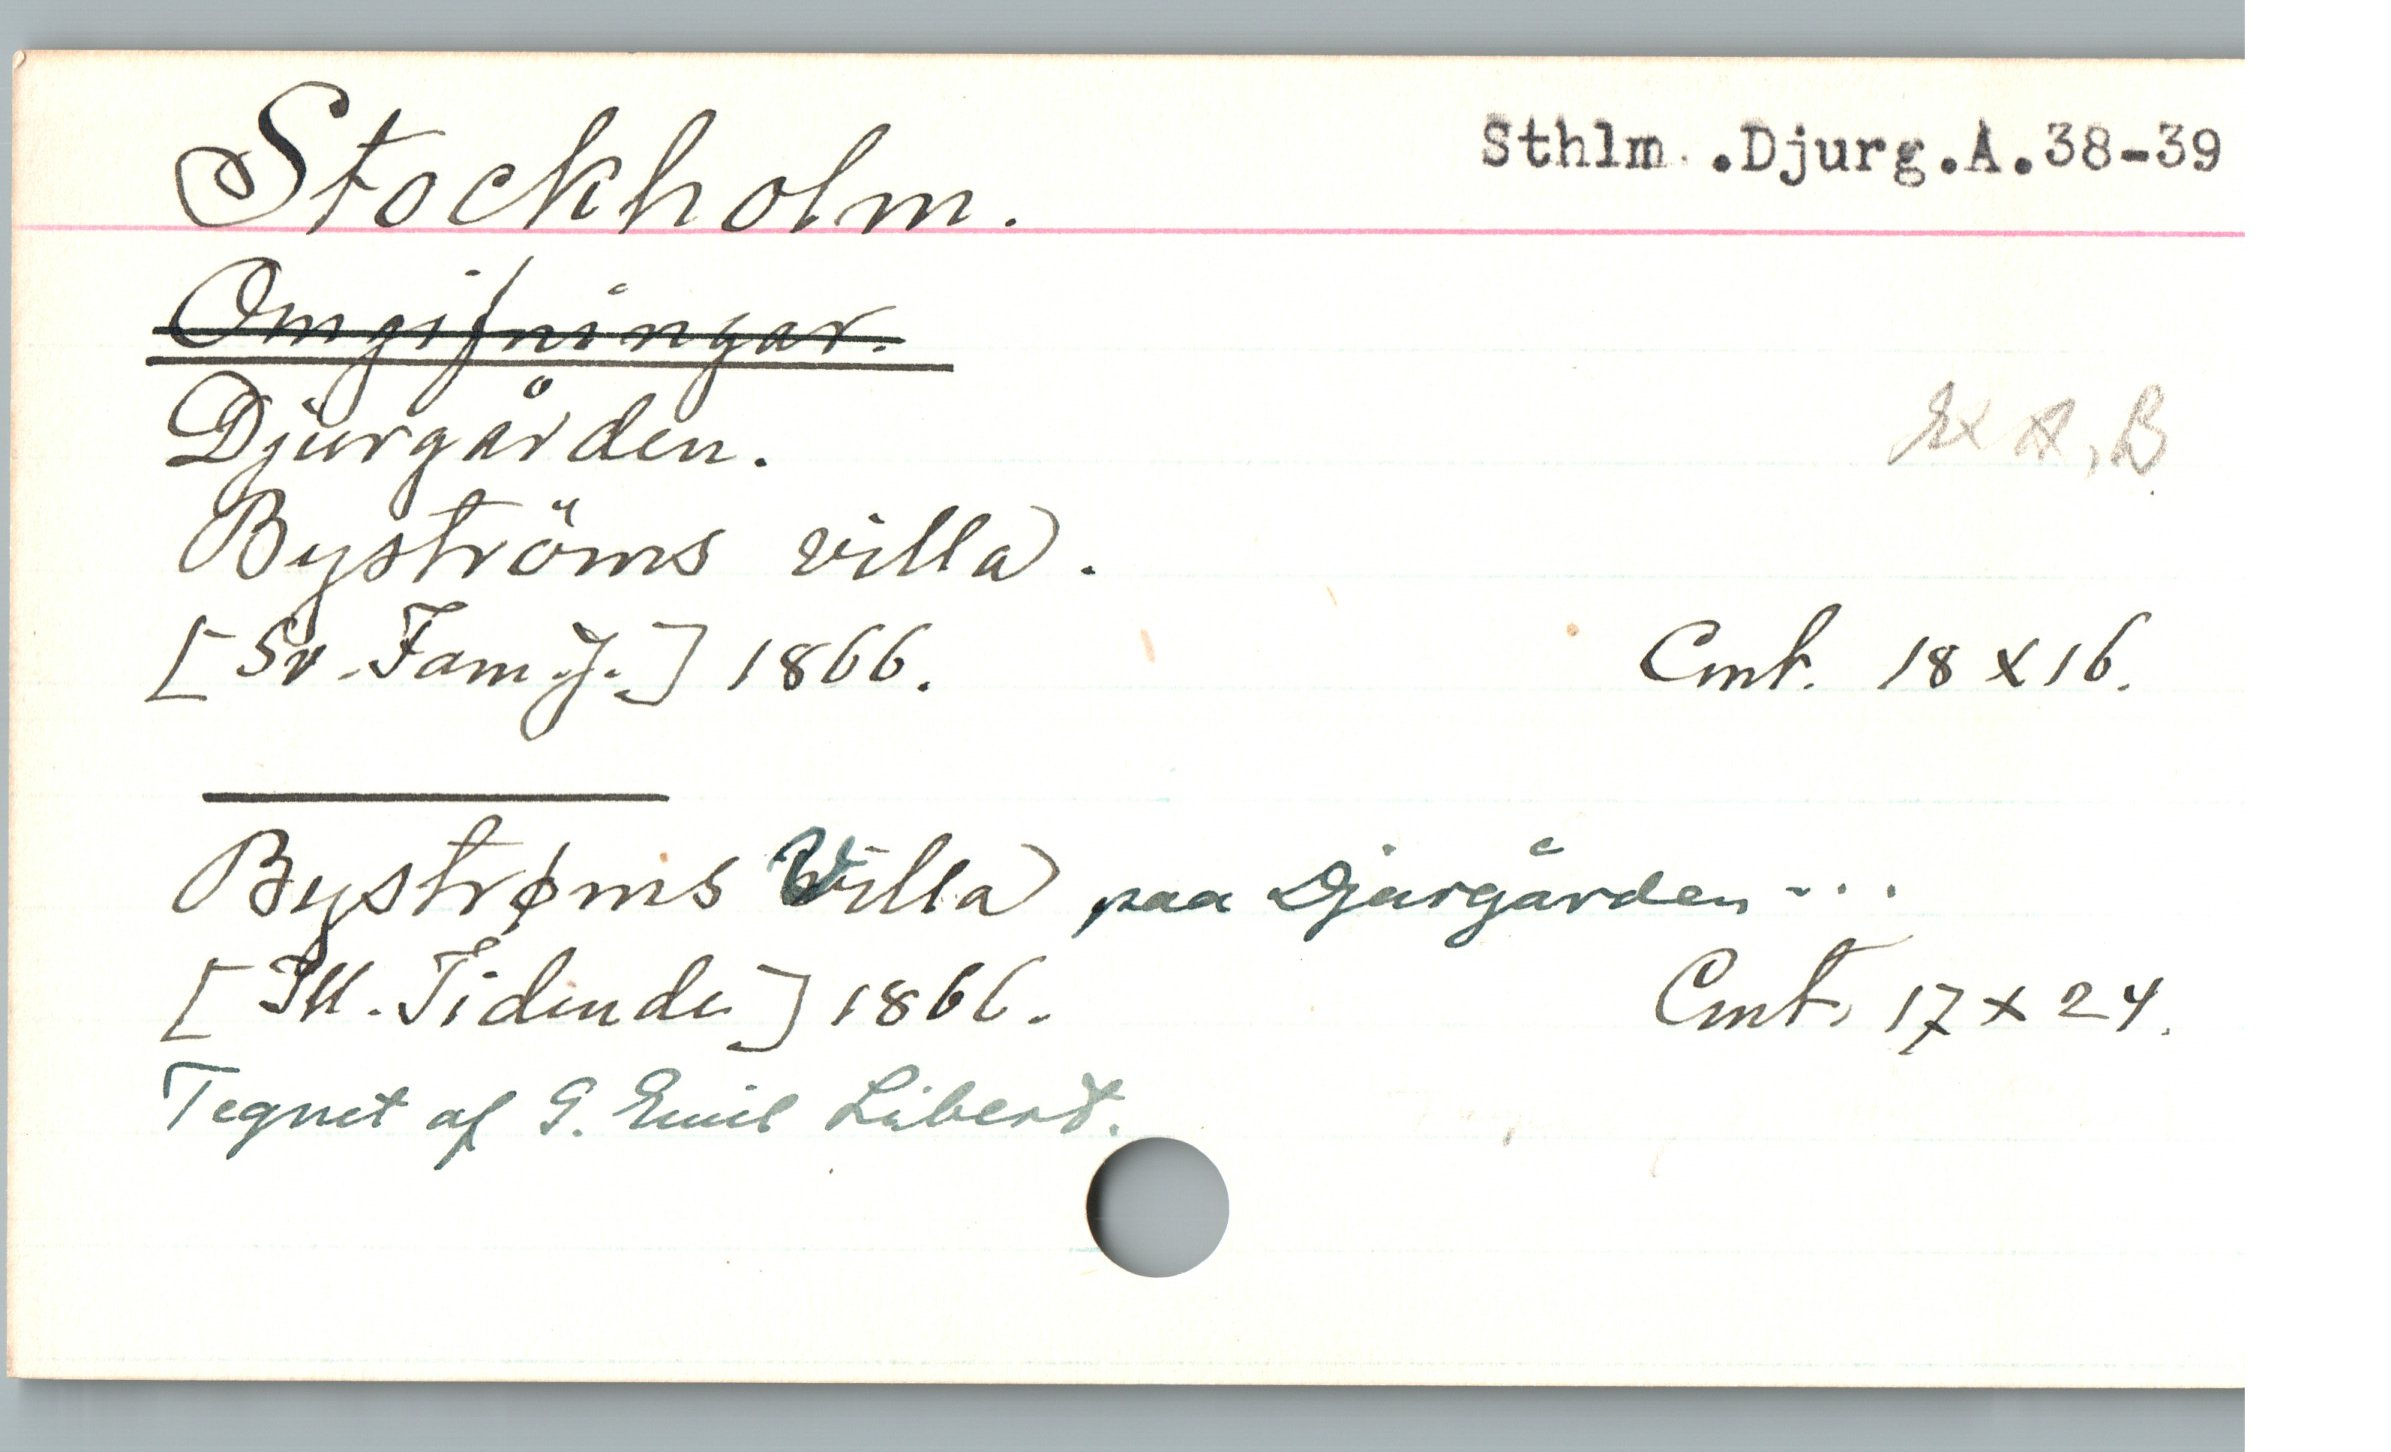 Stockholm.
Sthlm .Djurg.A.38-39
Omgifningar.
Djurgården.
Ex A, B
Byströms villa.
[Sv. Fam. J.] 1866.
Cmt. 18 x 16.
Bystrøms Villa paa Djurgården...
[Ill. Tidende] 1866.
Cmt. 17 x 24.
Tegnet af G. Emil Libert.